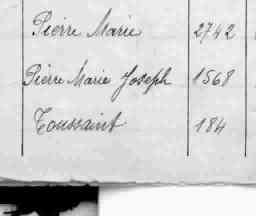 Pierre Marie 2742
Pierre Marie Joseph 1568
Toussaint 184